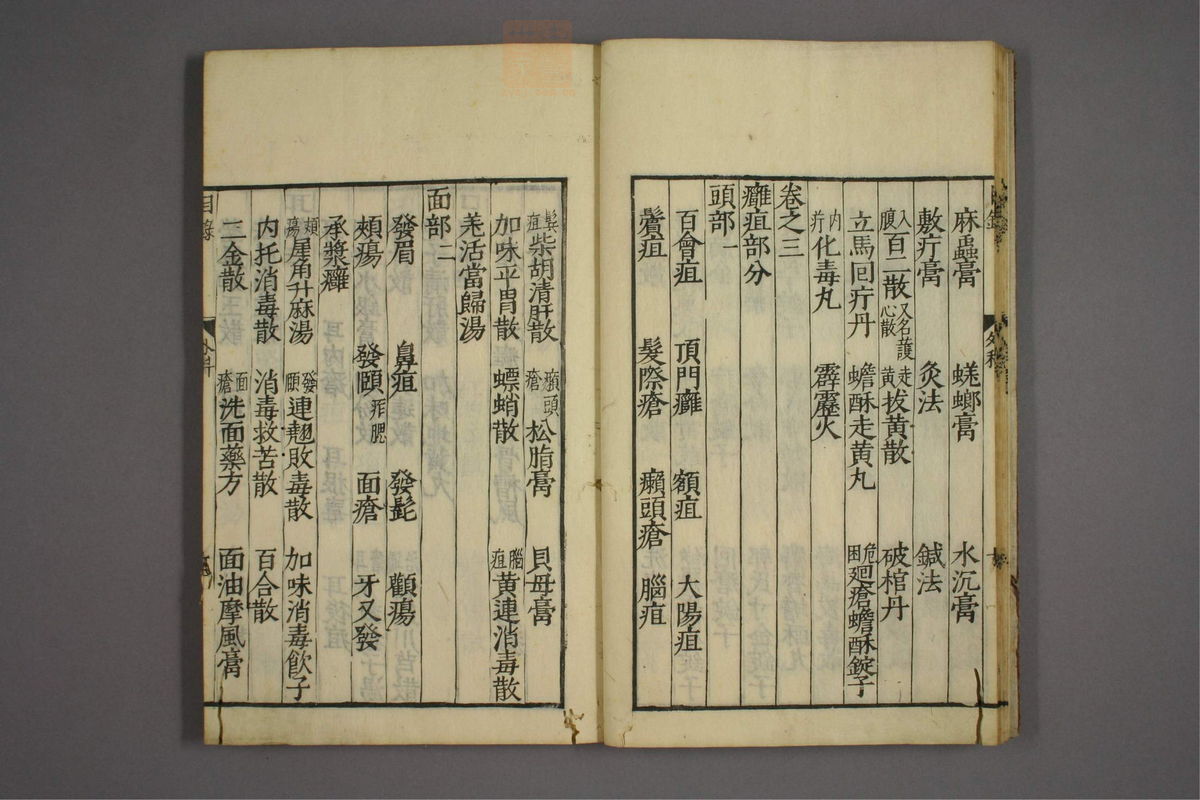 麻蟲膏 蜣螂膏 水沉膏
敷疔膏 灸法 鍼法
入腹 百二散 又名護心散 走黄 拔黄散 破棺丹
立馬回疔丹 蟾酥走黄丸 危困 廻瘡蟾酥錠子
内疔 化毒丸 霹靂火
卷之三
癰疽部分
頭部一
百會疽 頂門癰 額疽 大陽疽
鬢疽 髮際瘡 癩頭瘡 腦疽
鬓疽 柴胡清肝散 癩頭瘡 松脂膏 貝母膏
加味平胃散 螵蛸散 腦疽 黄連消毒散
羌活當歸湯
面部二
發眉 鼻疽 發髭 顴瘍
頰瘍 發頤 痄腮 面瘡 牙叉發
承漿癰
頰瘍 犀角升麻湯 發頤 連翹敗毒散 加味消毒飲子
内托消毒散 消毒救苦散 百合散
二金散 面瘡 洗面藥方 面油摩風膏
目錄 外科